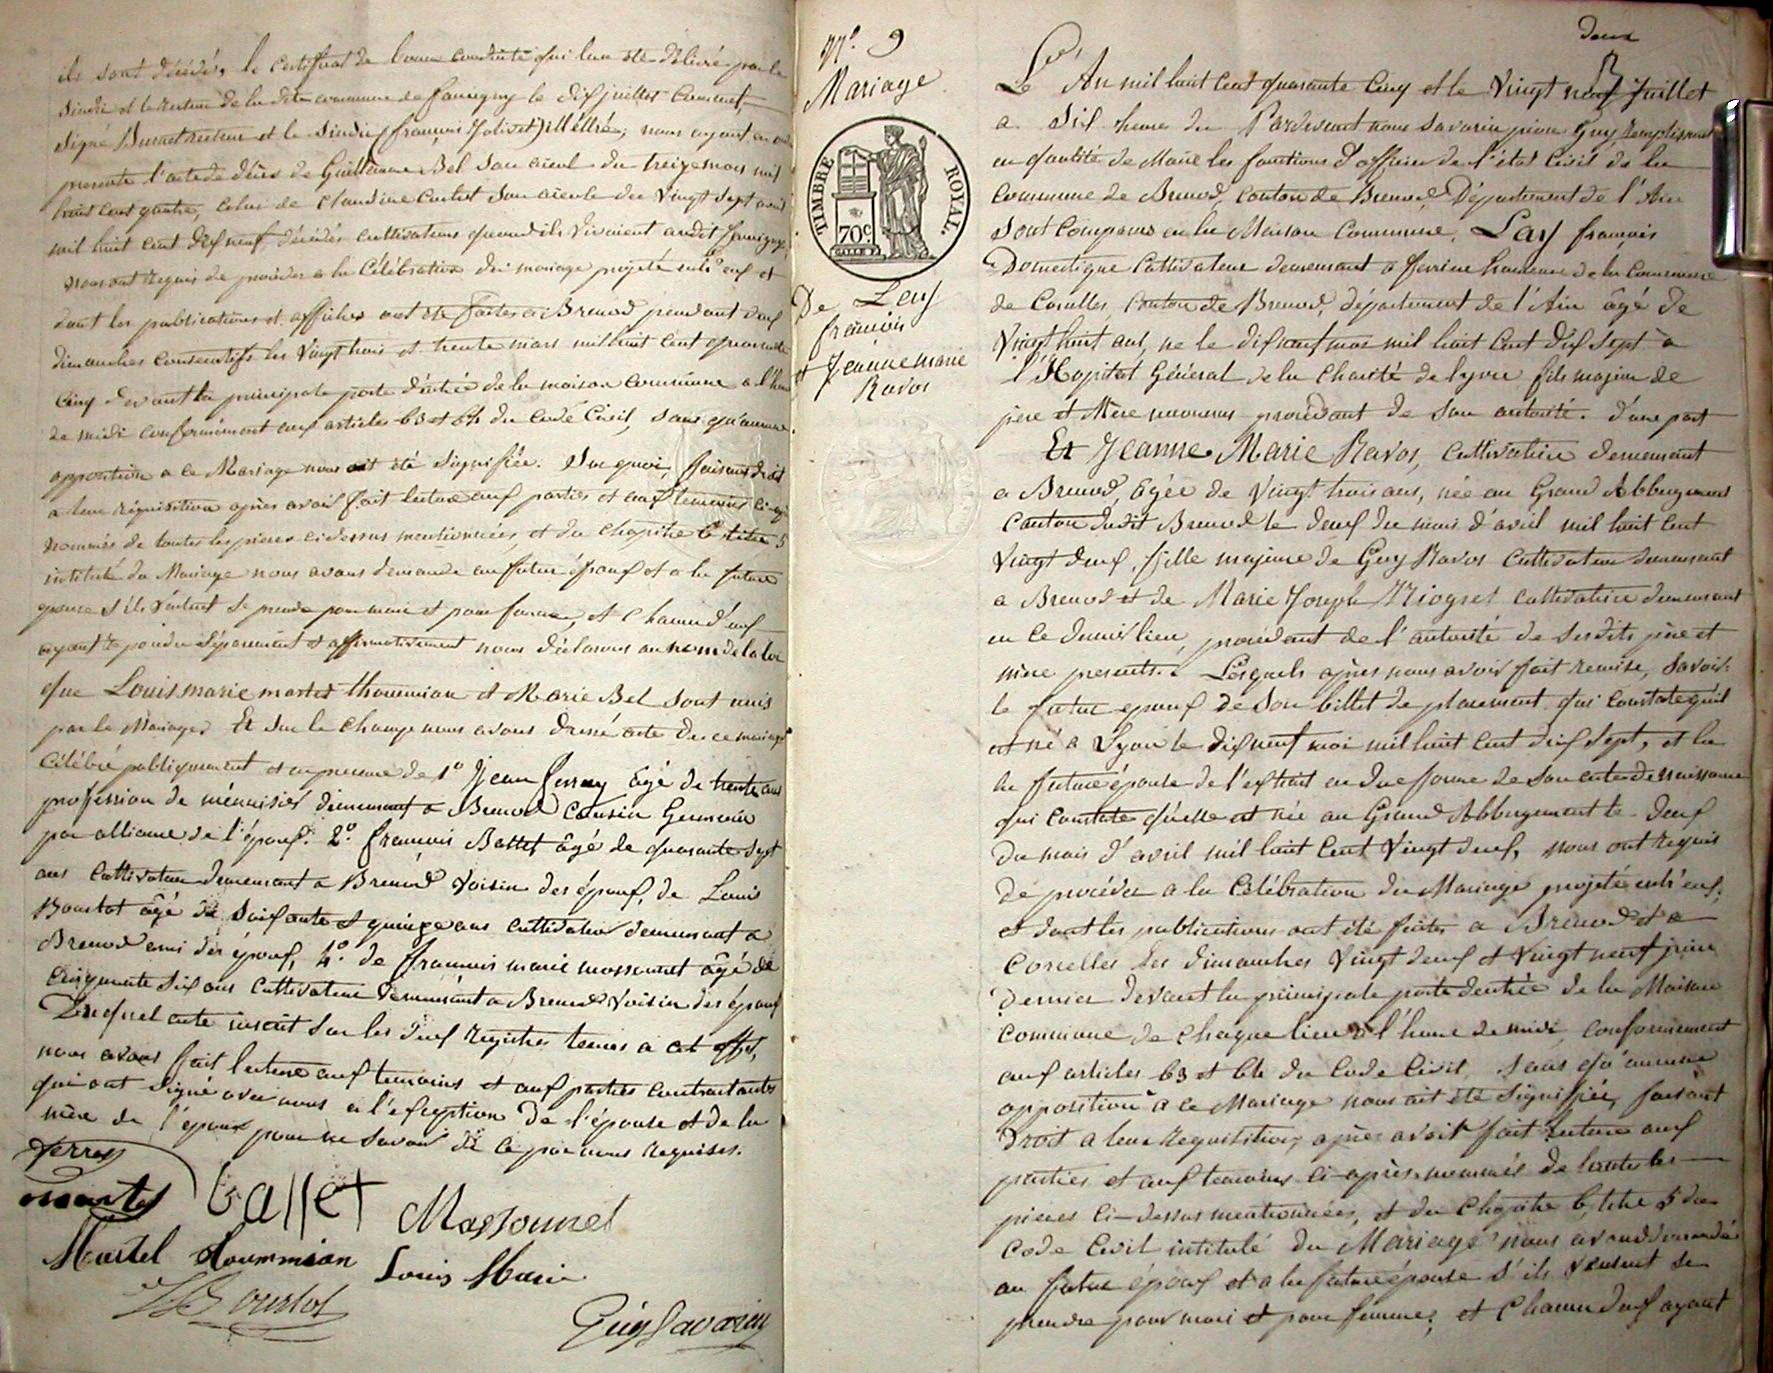 ils sont décédés, le certificat de bonne conduite qui leur été délivré par le
Sindic et le recteur de la dite commune de le dix juillet courant,
signé recteur et le Sindic françois illettré; nous ayant en outre
presenté l'acte de décès de Guillaume Bel son aieul du treize mars mil
huit cent quatre, celui de claudine son aieule du vingt sept avril
mil huit cent dix neuf, décédés cultivateurs quand ils vivoient audit
nous ont requis de procéder a la Célébration du mariage projeté entr'eux et
dont les publications et affiches ont été faites a Brenod pendant deux
dimanches consecutifs les vingt trois et trente mars mil huit cent quarante
cinq devant la principale porte d'entrée de la maison commune a l'heure
de midi conformément aux articles 63 et 64 du Code Civil, sans qu'aucune
opposition a ce Mariage nous ait été signifiée. Sur quoi, faisant droit
a leur réquisition après avoir fait lecture aux parties et aux temoins ci-après
nommés de toutes les pièces cidessus mentionnées, et du chapitre 6 titre 5
intitulé du Mariage nous avons demandé au futur époux et a la future
épouse s'ils veulent se prendre pour mari et pour femme, et chacun d'eux
ayant repondu séparément et affirmativement nous déclarons au nom de la loi
que Louis marie martel thoumian et Marie Bel sont unis
par le Mariage. Et sur le champ nous avons dressé acte de ce mariage
Célébré publiquement et en presence de 1º Jean ferray agé de trente ans
profession de ménuisier demeurant a Brenod Cousin Germain
par alliance de l'époux. 2º. françois Ballet âgé de quarante sept
ans Cultivateur demeurant a Brenod voisin des époux, de Louis
Bourlot âgé de soixante et quinze ans cultivateur demeurant a
Brenod ami des époux, 4º. de françois marie massonnet âgé de
cinquante six ans Cultivateur demeurant a Brenod voisin des époux
Duquel acte inscrit sur les deux registres tenus a cet effet,
nous avons fait lecture aux temoins et aux parties contractantes
qui ont signé avec nous a l'exception de l'épouse et de la
mère de l'époux pour ne savoir de ce par nous requises.
ferray
martel Ballet Massonnet
Martel thoummian Louis Marie
Bourlot
Guy Savarin
Nº. 9
Mariage
TIMBRE ROYAL.
70c
De Lay
françois
et Jeanne marie
Ravos
deux
L'An mil huit cent quarante cinq et le vingt neuf Juillet
a dix heures du Pardevant nous Savarin pierre Guy remplissant
en qualité de Maire les fonctions d'officier de l'état civil de la
Commune de Brenod, canton de Brenod, Département de l'Ain
sont comparus en la Maison Commune, Lay françois
Domestique Cultivateur demeurant a hameau de la Commune
de Corcelles, canton de Brenod, département de l'Ain âgé de
vingt huit ans, né le dix neuf mai mil huit cent dix sept à
l'Hopital Général de la Charité de lyon fils majeur de
père et Mère inconnus procédant de son autorité. d'une part
Et Jeanne Marie Ravos, cultivatrice demeurant
a Brenod, âgée de vingt trois ans, née au Grand Abbergement
Canton dudit Brenod le deux du mois d'avril mil huit cent
vingt deux, fille majeure de Guy Ravos Cultivateur demeurant
a Brenod et de Marie Joseph cultivatrice demeurant
en ce dernier lieu, procédant de l'autorité de sesdits père et
mère presents. Lesquels après nous avoir fait remise, savoir:
le futur epoux de son billet de placement qui constate qu'il
est né a Lyon le dix neuf mai mil huit cent dix sept, et la
la future épouse de l'extrait en due forme de son acte de naissance
qui constate qu'elle est née au Grand Abbergement le deux
du mois d'avril mil huit cent vingt deux, nous ont requis
de procéder a la Célébration du Mariage projeté entr'eux;
et dont les publications ont été faites a Brenod et a
Corcelles les dimanches vingt deux et vingt neuf juin
dernier devant la principale porte d'entrée de la Maison
commune de chaque lieu a l'heure de midi conformément
aux articles 63 et 64 du Code Civil, sans qu'aucune
opposition a ce Mariage nous ait été signifiée, faisant
Droit a leur requisition, après avoir fait lecture aux
parties et aux temoins ci-après nommés de toutes les
pièces ci-dessus mentionnées, et du Chapitre 6, titre 5 du
Code Civil intitulé du Mariage nous avons demandé
au futur époux et a la future épouse s'ils veulent se
prendre pour mari et pour femme; et Chacun d'eux ayant